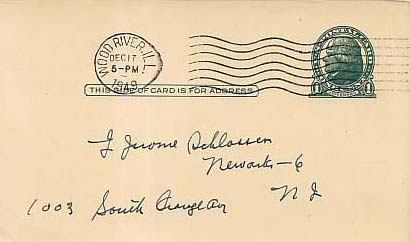 WOOD RIVER, ILL.
DEC 17
5-PM
1949
THIS SIDE OF CARD IS FOR ADDRESS
1 1
J Jerome Schlossen
Newark-6
1003 South Orange Av N J